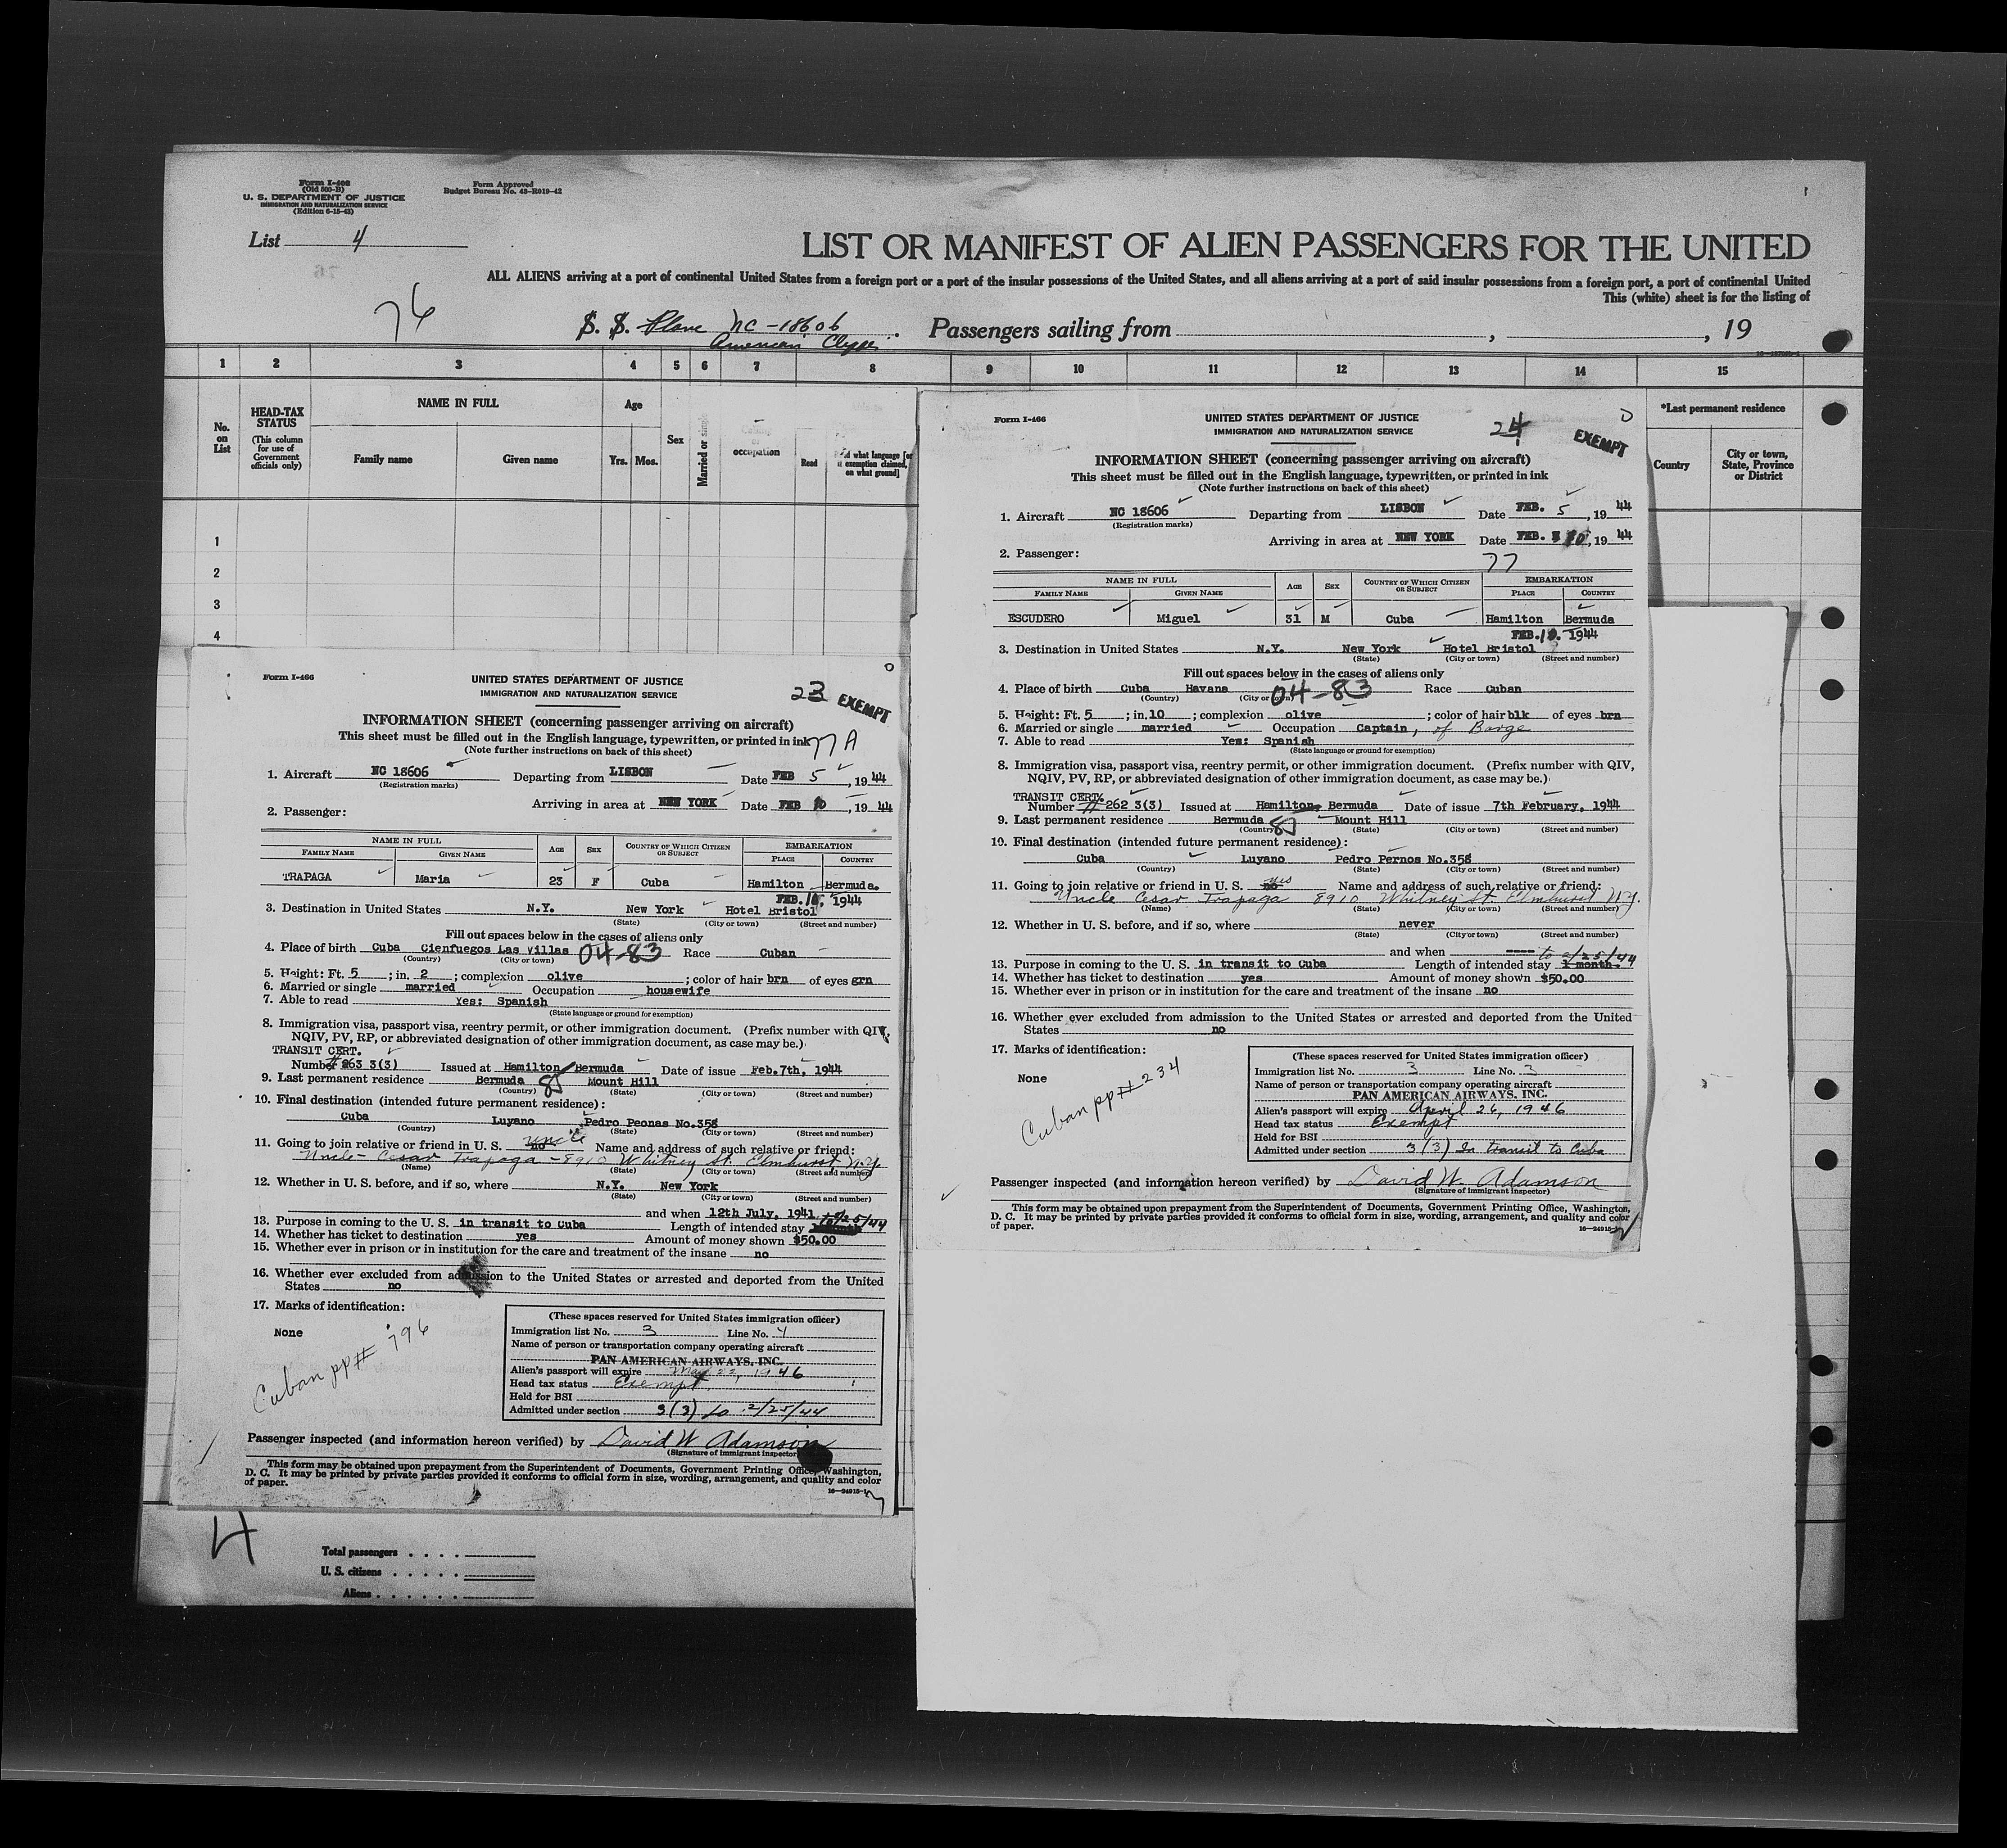 Form I-402
(Old 500-B)
U. S. DEPARTMENT OF JUSTICE
IMMIGRATION AND NATURALIZATION SERVICE
(Edition 6-15-43)
Form Approved
Budget Bureau No. 43-R019-42
List 4
LIST OR MANIFEST OF ALIEN PASSENGERS FOR THE UNITED
ALL ALIENS arriving at a port of continental United States from a foreign port or a port of the insular possessions of the United States, and all aliens arriving at a port of said insular possessions from a foreign port, a port of continental United
This (white) sheet is for the listing of
76
S. S. Plane NC-18606
American Clipper
Passengers sailing from , , 19
1 2 3 4 5 6 7 8 9 10 11 12 13 14 15
No. on List
HEAD-TAX STATUS
(This column for use of Government officials only)
NAME IN FULL
Family name Given name
Age
Yrs. Mos.
Sex
Married or
occupation
Read
what language [or
exemption claimed,
on what ground]
*Last permanent residence
Country
City or town, State, Province or District
1
2
3
4
Form I-466
UNITED STATES DEPARTMENT OF JUSTICE
IMMIGRATION AND NATURALIZATION SERVICE
23 EXEMPT
INFORMATION SHEET (concerning passenger arriving on aircraft)
This sheet must be filled out in the English language, typewritten, or printed in ink
77A
(Note further instructions on back of this sheet)
1. Aircraft NC 18606 Departing from LISBON Date FEB 5, 19 44
(Registration marks)
Arriving in area at NEW YORK Date FEB 10, 19 44
2. Passenger:
NAME IN FULL AGE SEX COUNTRY OF WHICH CITIZEN OR SUBJECT EMBARKATION
FAMILY NAME GIVEN NAME PLACE COUNTRY
TRAPAGA Maria 23 F Cuba Hamilton Bermuda.
FEB. 10, 1944
3. Destination in United States N.Y. New York Hotel Bristol
(State) (City or town) (Street and number)
Fill out spaces below in the cases of aliens only
4. Place of birth Cuba Cienfuegos Las Villas 04-83 Race Cuban
(Country) (City or town)
5. Height: Ft. 5; in. 2; complexion olive; color of hair brn of eyes grn
6. Married or single married Occupation housewife
7. Able to read Yes: Spanish
(State language or ground for exemption)
8. Immigration visa, passport visa, reentry permit, or other immigration document. (Prefix number with QIV,
NQIV, PV, RP, or abbreviated designation of other immigration document, as case may be.)
TRANSIT CERT.
Number #263 3(3) Issued at Hamilton Bermuda Date of issue Feb.7th, 1944
9. Last permanent residence Bermuda 85 Mount Hill
(Country) (State) (City or town) (Street and number)
10. Final destination (intended future permanent residence):
Cuba Luyano Pedro Peonas No.358
(Country) (State) (City or town) (Street and number)
11. Going to join relative or friend in U. S. no uncle Name and address of such relative or friend:
Uncle - Cesar Trapaga - 8910 Whitney St. Elmhurst, N.Y.
(Name) (State) (City or town) (Street and number)
12. Whether in U. S. before, and if so, where N.Y. New York
(State) (City or town) (Street and number)
and when 12th July, 1941
13. Purpose in coming to the U. S. in transit to Cuba Length of intended stay to 2/25/44
14. Whether has ticket to destination yes Amount of money shown $50.00
15. Whether ever in prison or in institution for the care and treatment of the insane no
16. Whether ever excluded from admission to the United States or arrested and deported from the United
States no
17. Marks of identification:
None
Cuban pp# 796
(These spaces reserved for United States immigration officer)
Immigration list No. 3 Line No. 4
Name of person or transportation company operating aircraft
PAN AMERICAN AIRWAYS, INC.
Alien's passport will expire May 23, 1946
Head tax status Exempt
Held for BSI
Admitted under section 3(3) to 2/25/44
Passenger inspected (and information hereon verified) by David W Adamson
(Signature of immigrant inspector)
This form may be obtained upon prepayment from the Superintendent of Documents, Government Printing Office, Washington,
D. C. It may be printed by private parties provided it conforms to official form in size, wording, arrangement, and quality and color
of paper.
16-24915-1
4
Total passengers
U. S. citizens
Aliens
Form I-466
UNITED STATES DEPARTMENT OF JUSTICE
IMMIGRATION AND NATURALIZATION SERVICE
24 EXEMPT
INFORMATION SHEET (concerning passenger arriving on aircraft)
This sheet must be filled out in the English language, typewritten, or printed in ink
(Note further instructions on back of this sheet)
1. Aircraft NC 18606 Departing from LISBON Date FEB. 5, 19 44
(Registration marks)
Arriving in area at NEW YORK Date FEB. 10, 19 44
2. Passenger:
77
NAME IN FULL AGE SEX COUNTRY OF WHICH CITIZEN OR SUBJECT EMBARKATION
FAMILY NAME GIVEN NAME PLACE COUNTRY
ESCUDERO Miguel 31 M Cuba Hamilton Bermuda
FEB. 10. 1944
3. Destination in United States N.Y. New York Hotel Bristol
(State) (City or town) (Street and number)
Fill out spaces below in the cases of aliens only
4. Place of birth Cuba Havana 04-83 Race Cuban
(Country) (City or town)
5. Height: Ft. 5; in. 10; complexion olive; color of hair blk of eyes brn
6. Married or single married Occupation Captain, of Barge
7. Able to read Yes: Spanish
(State language or ground for exemption)
8. Immigration visa, passport visa, reentry permit, or other immigration document. (Prefix number with QIV,
NQIV, PV, RP, or abbreviated designation of other immigration document, as case may be.)
TRANSIT CERT.
Number #262 3(3) Issued at Hamilton, Bermuda Date of issue 7th February, 1944
9. Last permanent residence Bermuda 85 Mount Hill
(Country) (State) (City or town) (Street and number)
10. Final destination (intended future permanent residence):
Cuba Luyano Pedro Pernos No.358
(Country) (State) (City or town) (Street and number)
11. Going to join relative or friend in U. S. no yes Name and address of such relative or friend:
Uncle Cesar Trapaga 8910 Whitney St. Elmhurst N.Y.
(Name) (State) (City or town) (Street and number)
12. Whether in U. S. before, and if so, where never
(State) (City or town) (Street and number)
and when ----
13. Purpose in coming to the U. S. in transit to Cuba Length of intended stay 1 month. to 2/25/44
14. Whether has ticket to destination yes Amount of money shown $50.00
15. Whether ever in prison or in institution for the care and treatment of the insane no
16. Whether ever excluded from admission to the United States or arrested and deported from the United
States no
17. Marks of identification:
None
Cuban pp# 234
(These spaces reserved for United States immigration officer)
Immigration list No. 3 Line No. 3
Name of person or transportation company operating aircraft
PAN AMERICAN AIRWAYS, INC.
Alien's passport will expire April 26, 1946
Head tax status Exempt
Held for BSI
Admitted under section 3(3) In transit to Cuba
Passenger inspected (and information hereon verified) by David W. Adamson
(Signature of immigrant inspector)
This form may be obtained upon prepayment from the Superintendent of Documents, Government Printing Office, Washington,
D. C. It may be printed by private parties provided it conforms to official form in size, wording, arrangement, and quality and color
of paper.
16-24915-1